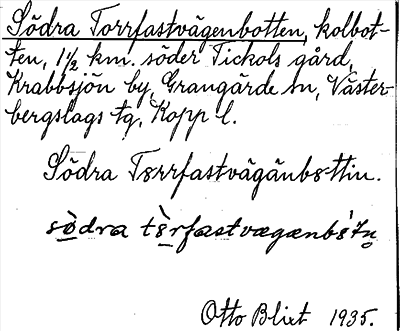 Södra Torrfastvägenbotten, kolbot-
ten, 1½ km. söder Tickols gård,
Krabbsjön by, Grangärde sn, Väster-
bergslags tg, Kopp l.
Södra Tȣrrfastvägänbȣttin.
Otto Blixt 1935.